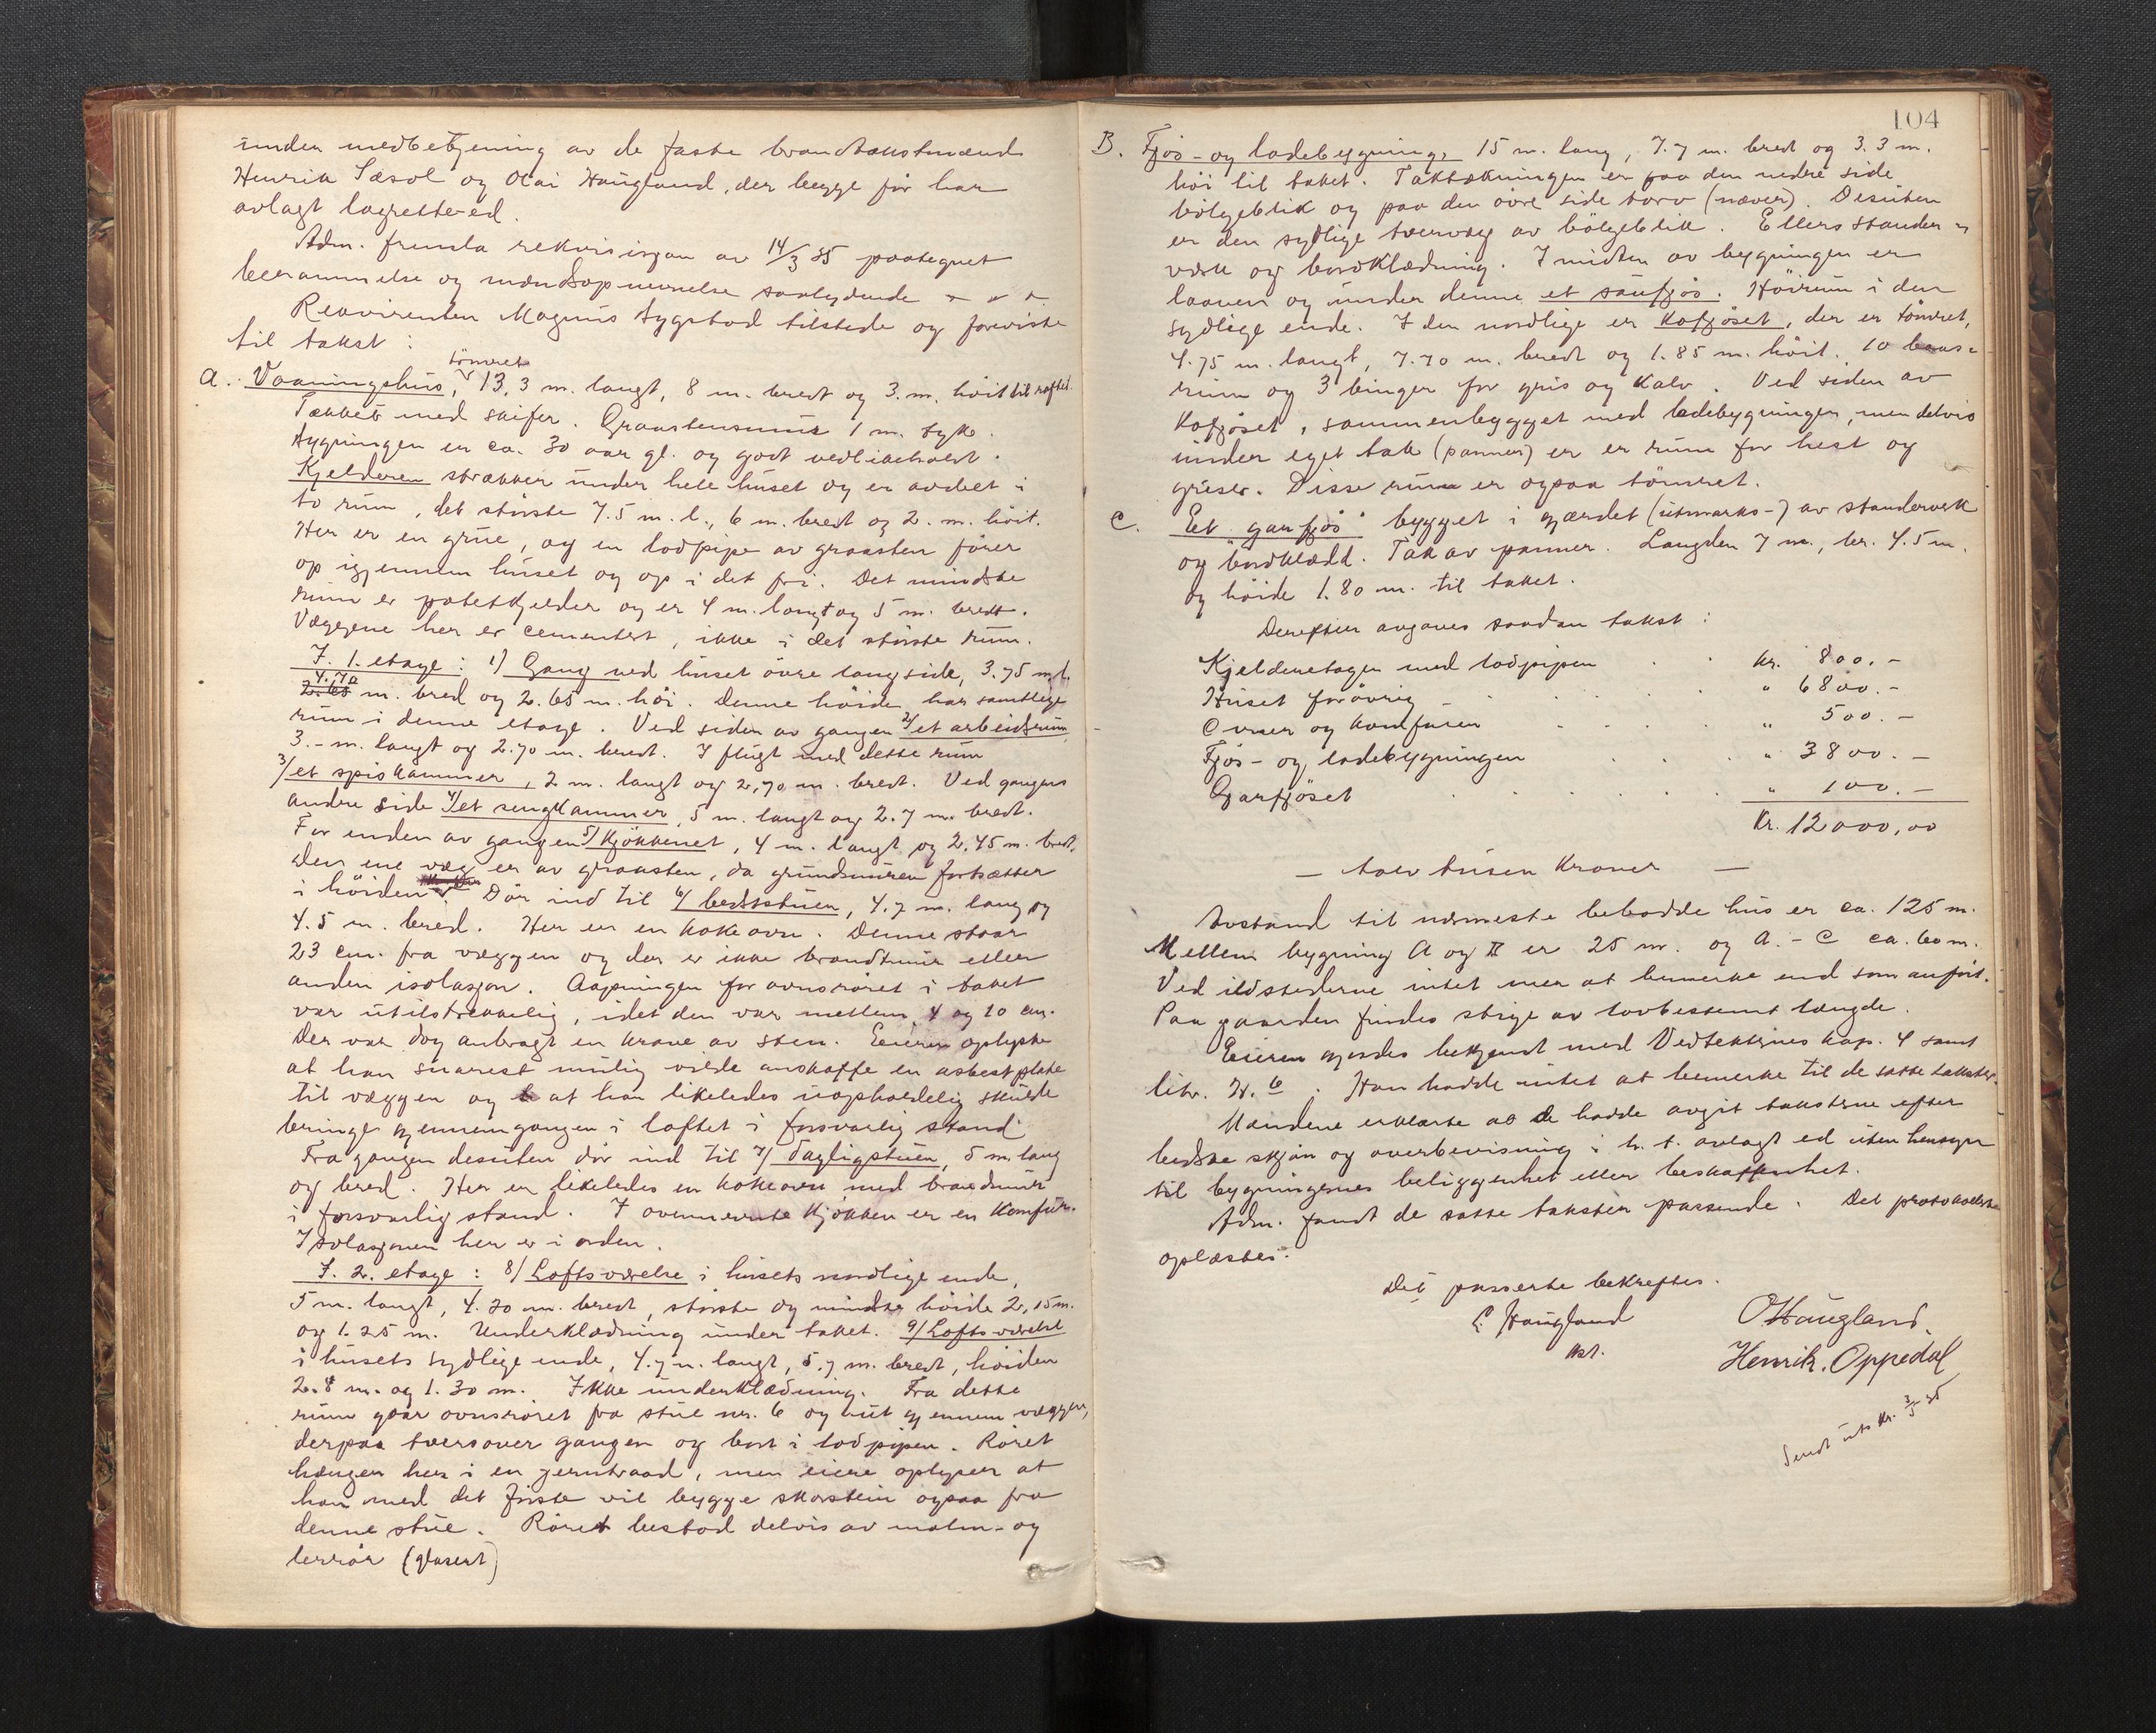 under medbetjening av de faste brandtakstmænd
Henrik Sæsol og Olai Haugland, der begge før har
avlagt lagrette-ed.
Adm. fremla rekvisisjon av 14/3 35 paategnet
berammelse og mændsopnevnelse saalydende
Rekvirenten Magnus Lygstad tilstede og foreviste
til takst:
tømret
A. Vaaningshus, 13,3 m. langt, 8 m. bredt og 3. m. høit til raftet.
Tækket med skifer. Graastensmur 1 m. tyk.
Bygningen er ca. 30 aar gl. og godt vedlikeholdt.
Kjelderen strækker under hele huset og er avdelt i
to rum, det største 7.5 m. l., 6 m. bredt og 2. m. høit.
Her er en grue, og en lodpipe av graasten fører
op igjennem huset og op i det fri. Det mindste
rum er potetkjelder og er 4 m. langt og 5 m. bredt.
Væggene her er cementert, ikke i det største rum.
I. 1. etage: 1) Gang ved huset øvre langside, 3.75 m. l.
4.70
2.65 m. bred og 2.65 m. høi. Denne høide har samtlige
rum i denne etage. Ved siden av gangen 2/ et arbeidsrum,
3.- m. langt og 2.70 m. bredt. I flugt med dette rum
3/ et spiskammer, 2 m. langt og 2,70 m. bredt. Ved gangens
andre side 4/ et sengkammer, 5 m. langt og 2.7 m. bredt.
For enden av gangen 5/ Kjøkkenet, 4 m. langt og 2.45 m. bredt.
Den ene væg er av graasten, da grundmuren fortsætter
i høiden. Dør ind til 6/ bedststuen, 4.7 m. lang og
4.5 m. bred. Her er en kokeovn. Denne staar
23 cm. fra væggen og der er ikke brandmur eller
anden isolasjon. Aapningen for ovnsrøret i taket
var utilstrekkelig, idet den var mellem 4 og 10 cm.
Der var dog anbragt en krave av sten. Eieren oplyste
at han snarest mulig vilde anskaffe en asbestplate
til væggen og at han likeledes uopholdelig skulde
bringe gjennemgangen i loftet i forsvarlig stand
Fra gangen desuten dør ind til 7/ dagligstuen, 5 m. lang
og bred. Her er likeledes en kokeovn med brandmur
i forsvarlig stand. I ovennevnte kjøkken er en komfur.
Isolasjonen her er i orden.
I. 2. etage: 8/ Loftsværelse i husets nordlige ende,
5 m. langt, 4.20 m. bredt, største og mindste høide 2,15 m.
og 1.25 m. Underklædning under taket. 9/ Loftsværelse
i husets sydlige ende, 4.7 m. langt, 5.7 m. bredt, høiden
2.8 m. og 1.30 m. Ikke underklædning. Fra dette
rum gaar ovnsrøret fra stue nr. 6 og ut gjennem væggen,
derpaa tversover gangen og bort i lodpipen. Røret
hænger her i en jerntraad, men eiere oplyser at
han med det første vil bygge skorstein ogsaa fra
denne stue. Røret bestod delvis av malm- og
lerrør (glasert)
104
B. Fjøs- og ladebygning, 15 m. lang, 7.7 m. bredt og 3.3 m.
høi til taket. Taktækningen er paa den nedre side
bølgeblik og paa den øvre side torv (næver). Desuten
er den sydlige tvervæg av bølgeblik. Ellers stander-
verk og bordklædning. I midten av bygningen er
laaven og under denne et saufjøs. Høirum i den
sydlige ende. I den nordlige er Kofjøset, der er tømret,
4.75 m. langt, 7.70 m. bredt og 1.85 m. høit. 10 baas-
rum og 3 binger for gris og kalv. Ved siden av
Kofjøset, sammenbygget med ladebygningen, men delvis
under eget tak (panner) er er rum for hest og
griser. Disse rum er ogsaa tømret.
C. Et "garfjøs" bygget i gjærdet (utmarks-) av standerverk
og bordklædd. Tak av panner. Længden 7 m., br. 4.5 m.
og høide 1.80 m. til taket.
Derefter avgaves saadan takst:
Kjelderetagen med lodpipen . . kr. 800.-
Huset forøvrig . . . . " 6800.-
Ovner og komfuren . . . " 500.-
Fjøs- og ladebygningen . . . " 3800.-
Garfjøset . . . . . " 100.-
Kr. 12000,00
— tolv tusen kroner —
Avstand til nærmeste bebodde hus er ca. 125 m.
Mellem bygning A og B er 25 m. og A.- C ca. 60 m.
Ved ildstederne intet mer at bemerke end som anført.
Paa gaarden findes stige av lovbestemt længde.
Eieren gjordes bekjendt med Vedtekternes kap. 4 samt
litr. H. 6. Han hadde intet at bemerke til de satte takster.
Mændene erklærte at de hadde avgit takstene efter
bedste skjøn og overbevisning i h. t. avlagt ed uten hensyn
til bygningernes beliggenhet eller beskaffenhet.
Adm. fandt de satte takster passende. Det protokollerte
oplæstes.
Det passerte bekreftes.
L. Haugland
O Haugland
Henrik. Oppedal
Sendt utskr. 3/5 35